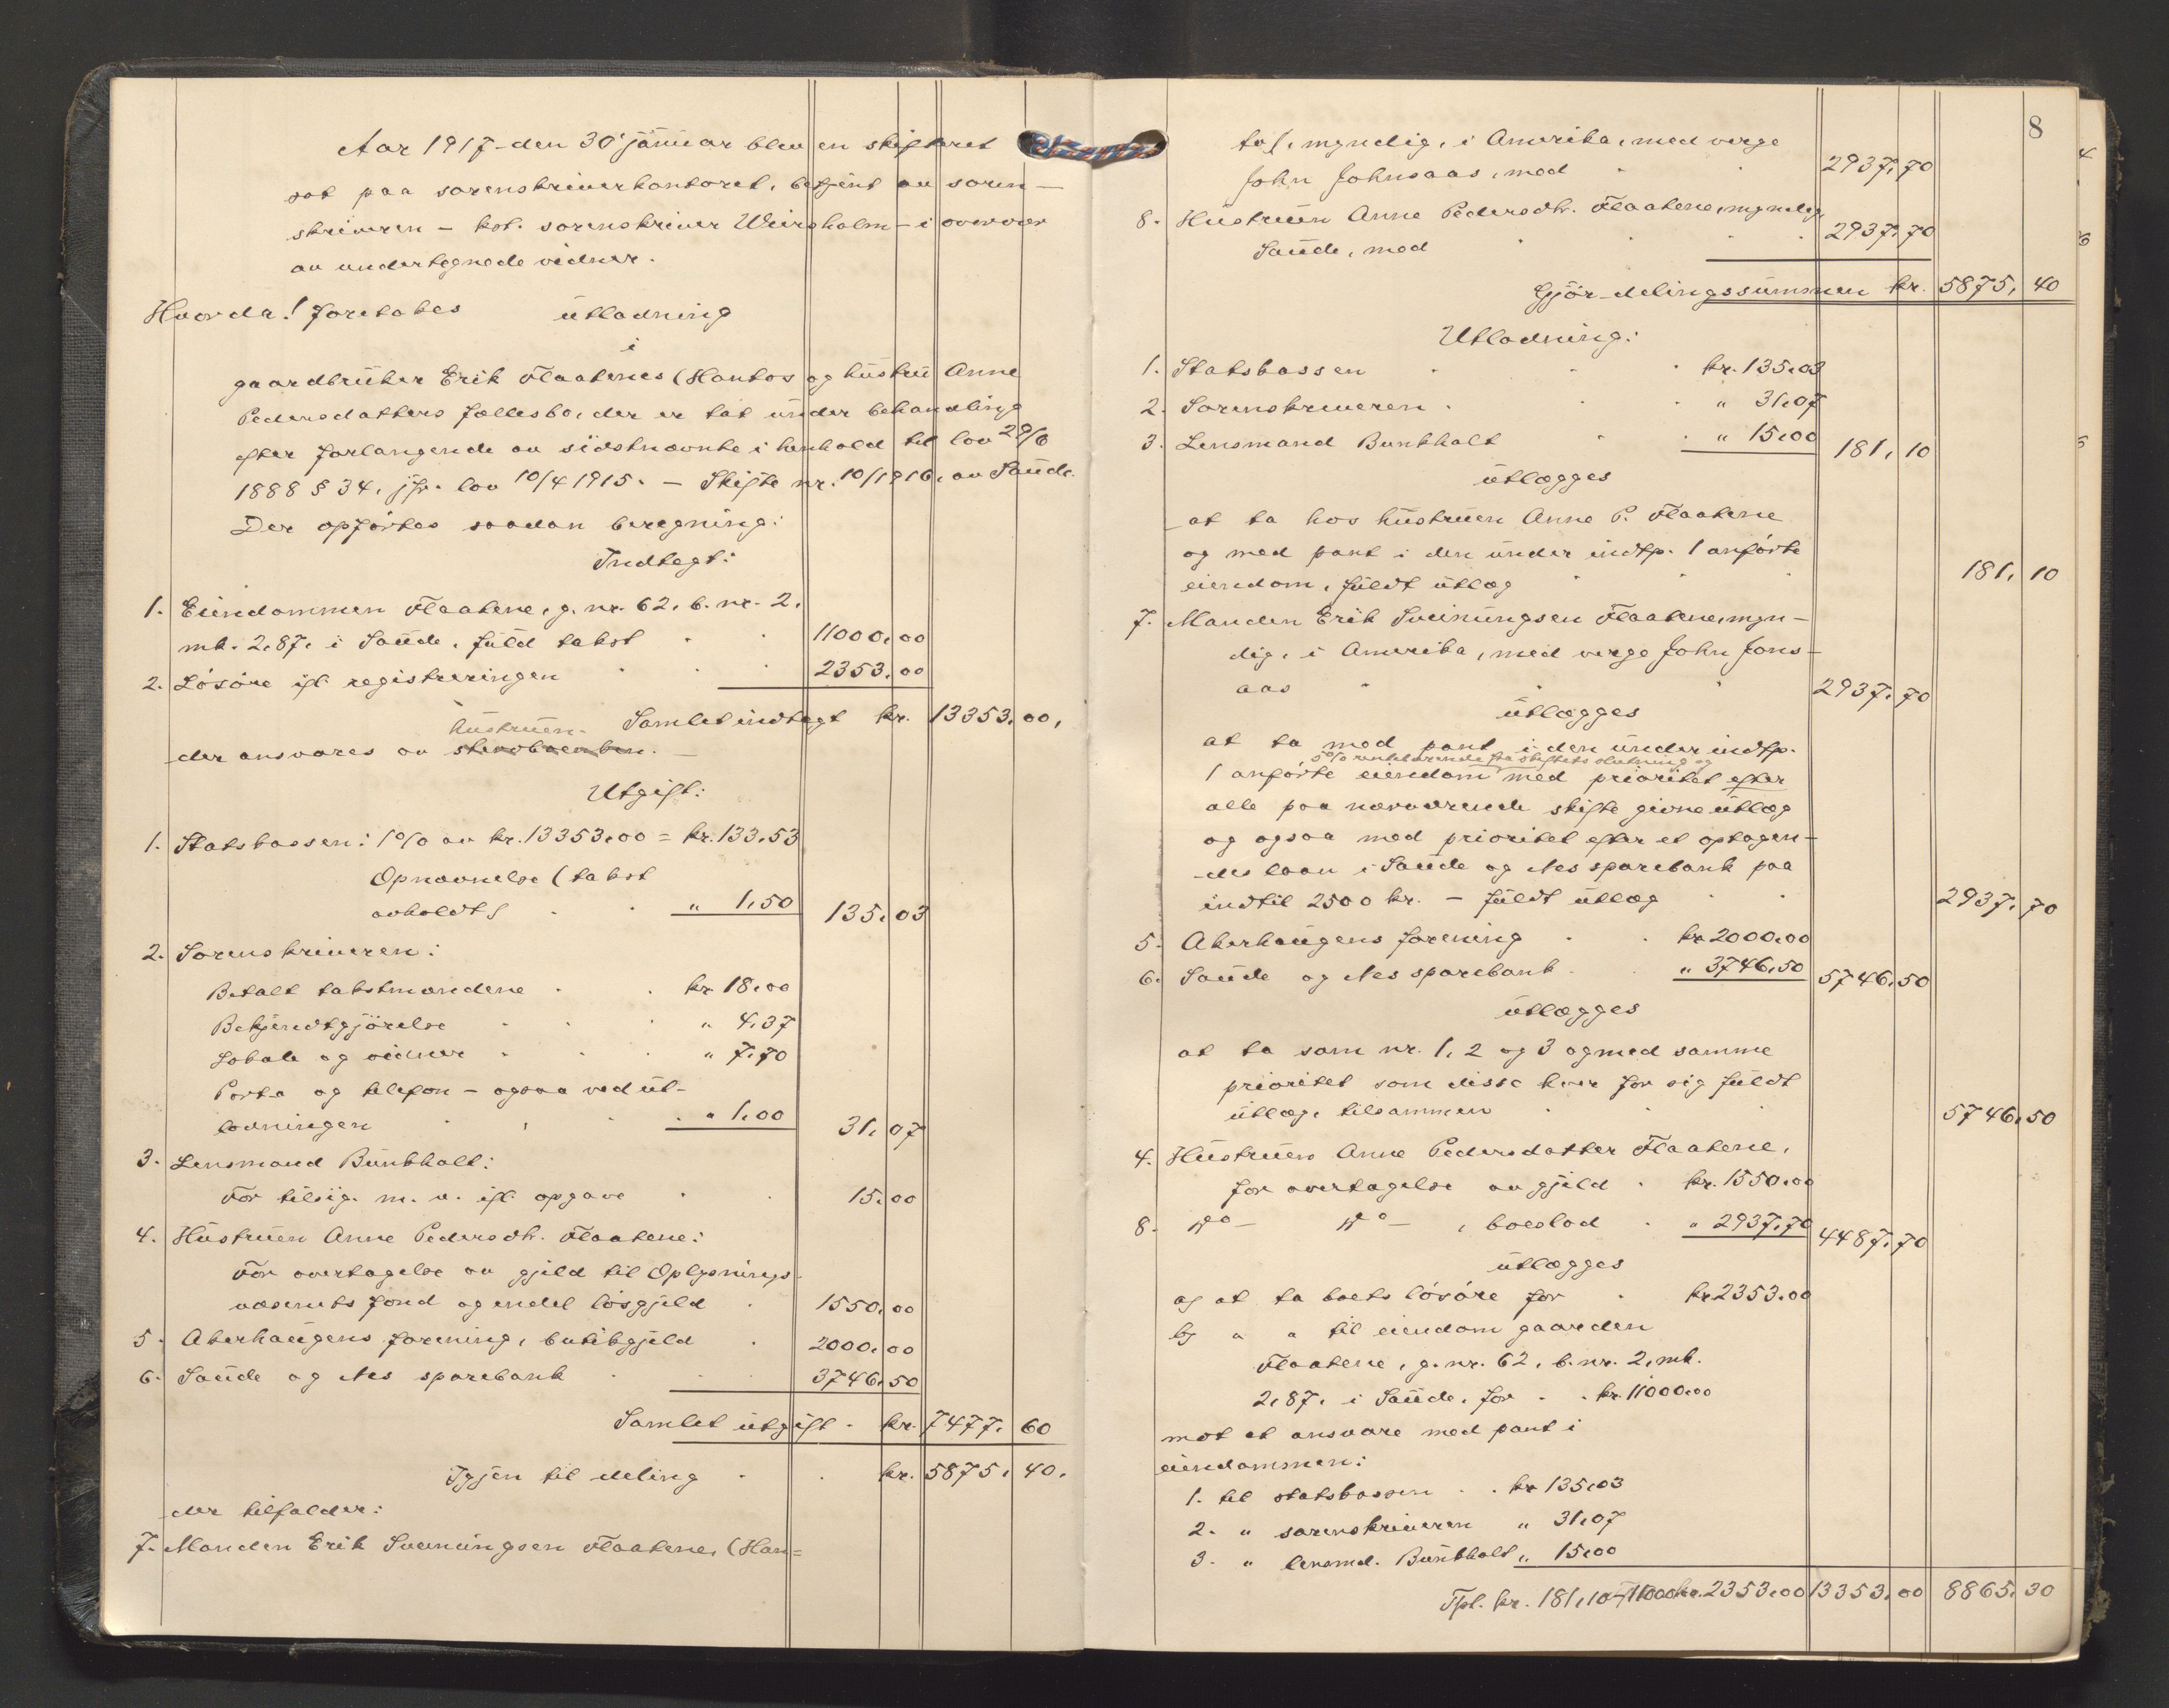 Aar 1917 den 30' januar blev en skifteret
sat paa sorenskriverkontoret, betjent av soren-
skriveren – kst. sorenskriver Weirsholm – i overvær
av undertegnede vidner.
Hvorda! foretokes utlodning
i
gaardbruker Erik Flaatenes (Hantos og hustru Anne
Pedersdatters fællesbo, der er tat under behandling
efter forlangende av sidstnævnte i henhold til lov 29/6
1888 § 34, jfr. lov 10/4 1915. – Skifte nr. 10/1916, av Saude.
Der opførtes saadan beregning:
Indtegt:
1. Eiendommen Flaatene, g. nr. 62, b. nr. 2,
mk. 2,87, i Saude, fuld takst 11000,00
2. Løsøre ifl. registreringen 2353,00
Samlet indtægt kr. 13353,00,
hustruen.
der ansvares av stervboenken. –
Utgift:
1. Statskassen: 1% av kr. 13353,00 = kr. 133,53
Opnævnelse (takst
avholdt) " 1,50 135,03
2. Sorenskriveren:
Betalt takstmændene kr. 18,00
Bekjendtgjørelse " 4,37
Lokale og vidner " 7,70
Porto og telefon – ogsaa ved ut-
lodningen " 1,00 31,07
3. Lensmand Bunkholt:
For tilsig. m. v. ifl. opgave 15,00
4. Hustruen Anne Pedersdtr. Flaatene:
For overtagelse av gjeld til Oplysnings-
væsenets fond og endel løsgjeld 1550,00
5. Akerhaugens forening, butikgjeld 2000,00
6. Saude og Nes sparebank 3746,50
Samlet utgift kr. 7477,60
Igjen til deling kr. 5875,40,
der tilfalder:
7. Manden Erik Sveinungsen Flaatene, (Han=
8
tos), myndig, i Amerika, med verge
John Johnsaas, med 2937,70
8. Hustruen Anne Pedersdtr. Flaatene, myndig,
Saude, med 2937,70
Gjør delingssummen kr. 5875,40
Utlodning:
1. Statskassen kr. 135,03
2. Sorenskriveren " 31,07
3. Lensmand Bunkholt " 15,00 181,10
utlægges
at ta hos hustruen Anne P. Flaatene
og med pant i den under indtp. 1 anførte
eiendom, fuldt utlæg 181,10
7. Manden Erik Sveinungsen Flaatene, myn-
dig, i Amerika, med verge John Jons-
aas 2937,70
utlægges
at ta med pant i den under indtp.
5% rentebærende fra skiftets slutning og
1 anførte eiendom med prioritet efter
alle paa nærværende skifte givne utlæg
og ogsaa med prioritet efter et optagen-
des laan i Saude og Nes sparebank paa
indtil 2500 kr. – fuldt utlæg 2937,70
5. Akerhaugens forening kr 2000,00
6. Saude og Nes sparebank " 3746,50 5746,50
utlægges
at ta som nr. 1, 2 og 3 og med samme
prioritet som disse hver for sig fuldt
utlæg, tilsammen 5746,50
4. Hustruen Anne Pedersdatter Flaatene,
for overtagelse av gjeld kr. 1550,00
8. do – do – , boeslod " 2937,70 4487,70
utlægges
a) at ta boets løsøre for kr 2353,00
b) " " til eiendom gaarden
Flaatene, g. nr. 62, b. nr. 2, mk.
2,87, i Saude, for kr. 11000,00
mot at ansvare med pant i
eiendommen:
1. til statskassen kr 135,03
2. " sorenskriveren " 31,07
3. " lensmd. Bunkholt " 15,00
Tpl. kr. 181,10 11000 kr. 2353,00 13353,00 8865,30